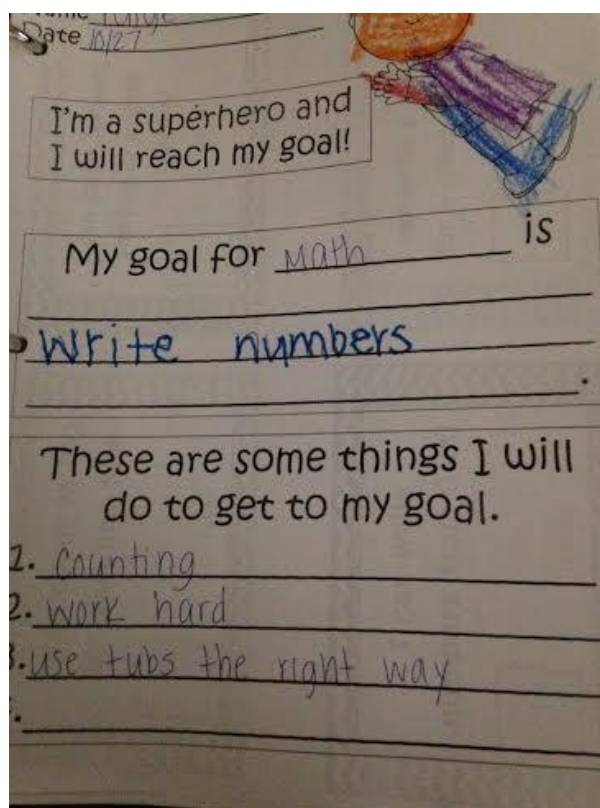 Name Paige
Date 10/27
I'm a superhero and
I will reach my goal!
My goal for Math is
Write numbers
.
These are some things I will
do to get to my goal.
1. Counting
2. work hard
3. use tubs the right way